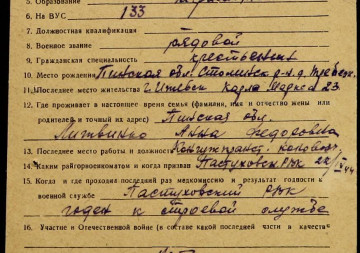 5. Образование
6. На ВУС 133
7. Должностная квалификация
8. Военное звание рядовой
9. Гражданская специальность крестьянин
10. Место рождения Пинская обл. Столинск. р-н. д.
11. Последнее место жительства г. Ижевск Карла Маркса 23
12. Где проживает в настоящее время семья (фамилия, имя и отчество жены или
родителей и точный их адрес) Пинская обл.
Литвинко Анна Федоровна
13. Последнее место работы и должность
14. Каким райгорвоенкоматом и когда призван Пастуховск. РВК 22/
15. Когда и где проходил последний раз медкомиссию и результат годности к
военной службе Пастуховский РВК
годен к строевой службе
16. Участие в Отечественной войне (в составе какой последней части в качестве